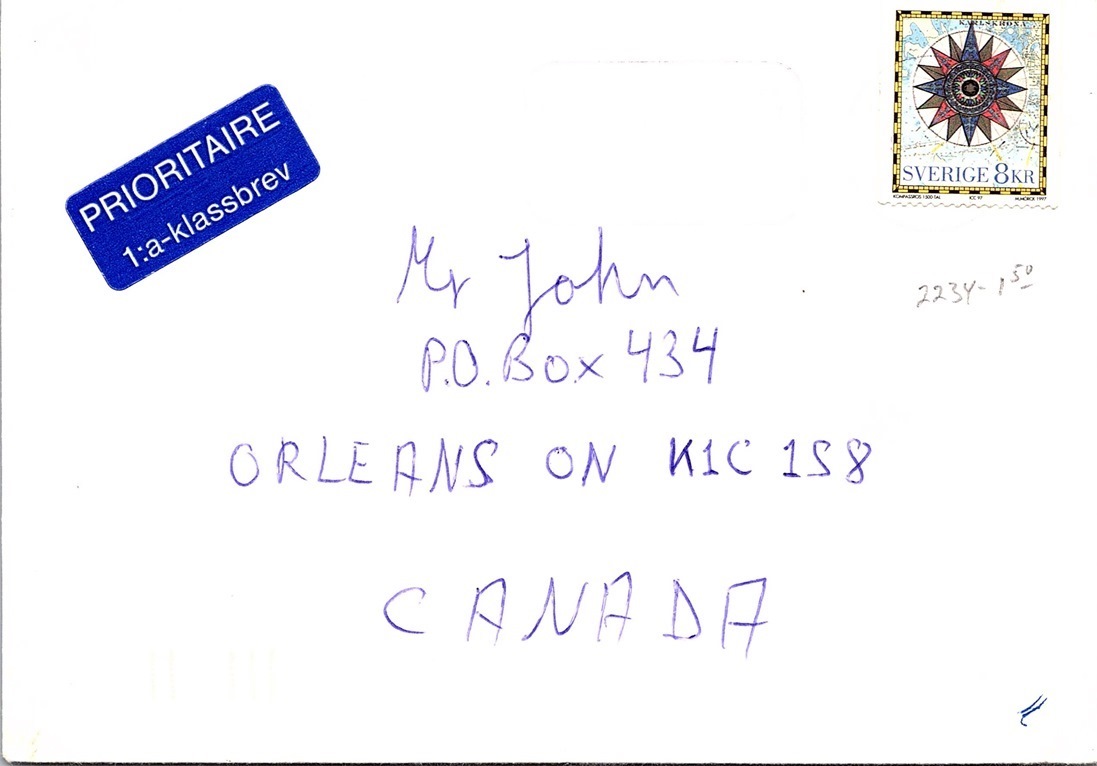 PRIORITAIRE
1:a-klassbrev
KARLSKRONA
SVERIGE 8KR
KOMPASSROS 1500-TAL ICC 97 M.MÖRCK 1997
2234-1 50
Mr John
P.O. Box 434
ORLEANS ON K1C 1S8
CANADA